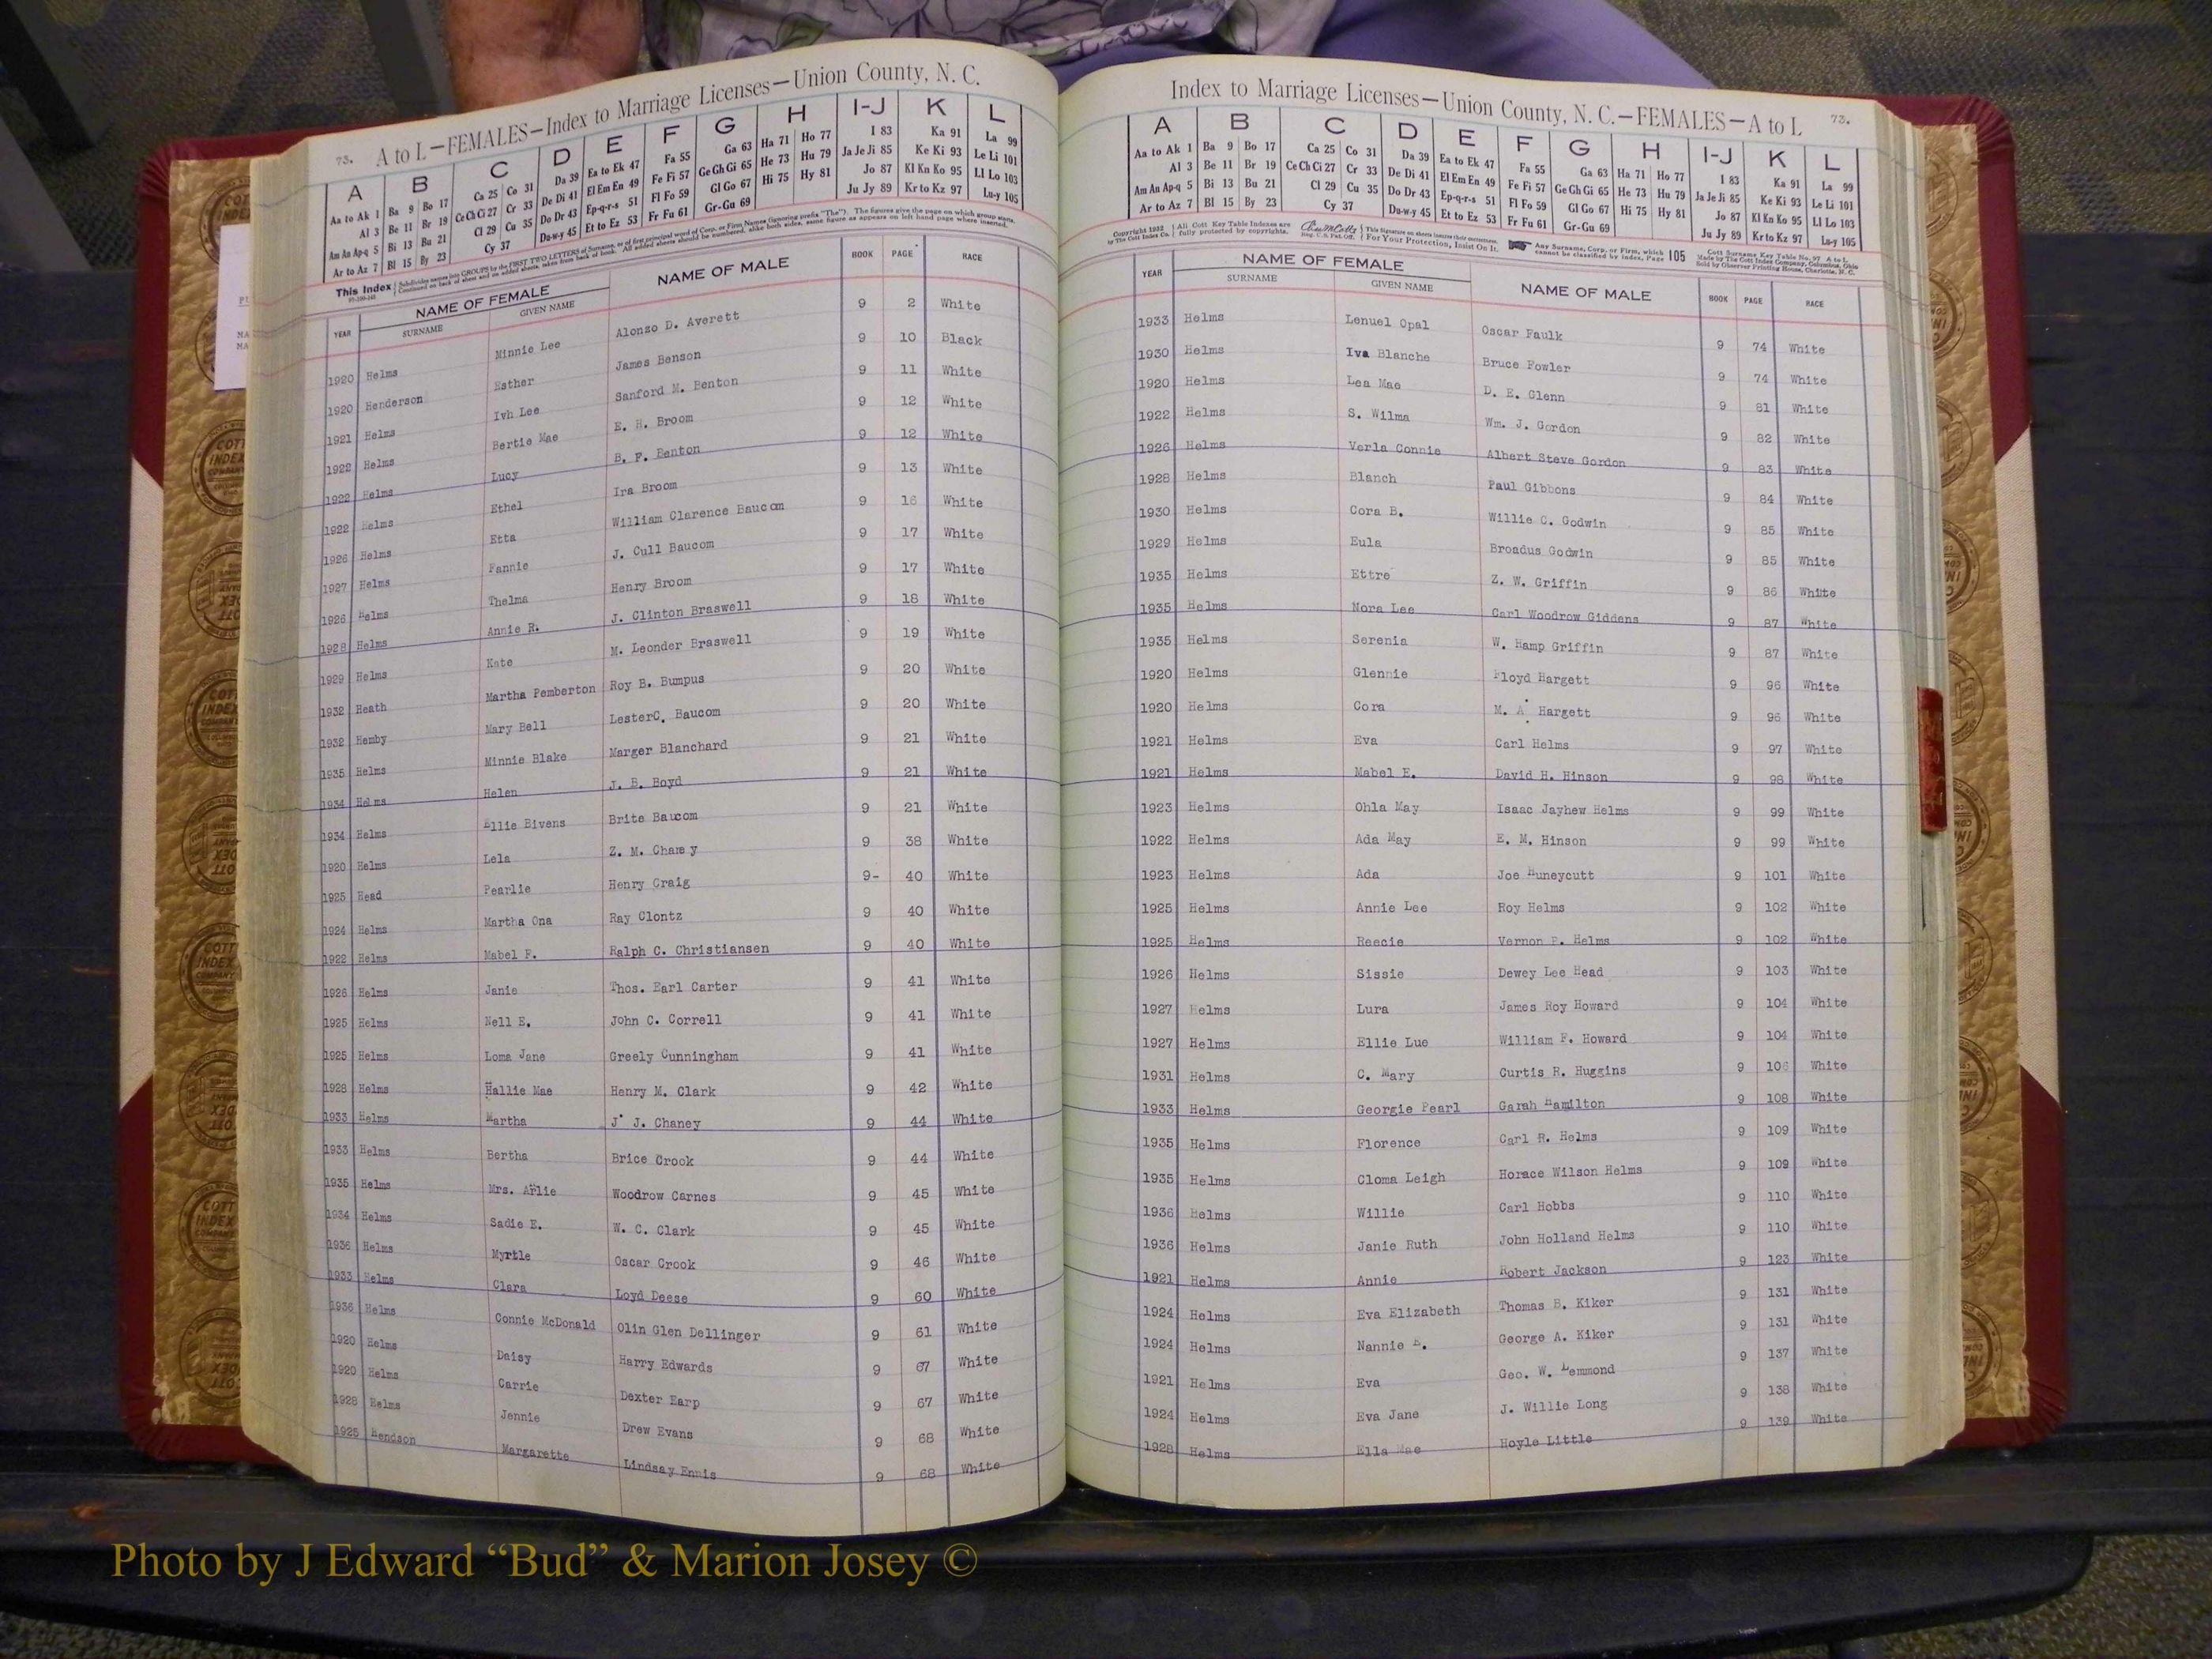 73. A to L—FEMALES—Index to Marriage Licenses—Union County, N. C.
A B C D E F G H I-J K L
Aa to Ak 1 Ba 9 Bo 17 Ca 25 Co 31 Da 39 Ea to Ek 47 Fa 55 Ga 63 Ha 71 Ho 77 I 83 Ka 91 La 99
Al 3 Be 11 Br 19 Ce Ch Ci 27 Cr 33 De Di 41 El Em En 49 Fe Fi 57 Ge Gh Gi 65 He 73 Hu 79 Ja Je Ji 85 Ke Ki 93 Le Li 101
Am An Ap-q 5 Bi 13 Bu 21 Cl 29 Cu 35 Do Dr 43 Ep-q-r-s 51 Fl Fo 59 Gl Go 67 Hi 75 Hy 81 Jo 87 Kl Kn Ko 95 Ll Lo 103
Ar to Az 7 Bl 15 By 23 Cy 37 Du-w-y 45 Et to Ez 53 Fr Fu 61 Gr-Gu 69 Ju Jy 89 Kr to Kz 97 Lu-y 105
This Index
YEAR NAME OF FEMALE NAME OF MALE BOOK PAGE RACE
SURNAME GIVEN NAME
1920 Helms Minnie Lee Alonzo D. Averett 9 2 White
1920 Henderson Esther James Benson 9 10 Black
1921 Helms Ivh Lee Sanford M. Benton 9 11 White
1922 Helms Bertie Mae E. H. Broom 9 12 White
1922 Helms Lucy B. F. Benton 9 12 White
1922 Helms Ethel Ira Broom 9 13 White
1926 Helms Etta William Clarence Baucom 9 16 White
1927 Helms Fannie J. Cull Baucom 9 17 White
1926 Helms Thelma Henry Broom 9 17 White
1928 Helms Annie R. J. Clinton Braswell 9 18 White
1929 Helms Kate M. Leonder Braswell 9 19 White
1932 Heath Martha Pemberton Roy B. Bumpus 9 20 White
1932 Hemby Mary Bell LesterC. Baucom 9 20 White
1935 Helms Minnie Blake Marger Blanchard 9 21 White
1934 Helms Helen J. B. Boyd 9 21 White
1934 Helms Ellie Bivens Brite Baucom 9 21 White
1920 Helms Lela Z. M. Chaney 9 38 White
1925 Head Pearlie Henry Craig 9- 40 White
1924 Helms Martha Ona Ray Clontz 9 40 White
1922 Helms Mabel F. Ralph C. Christiansen 9 40 White
1926 Helms Janie Thos. Earl Carter 9 41 White
1925 Helms Nell E. John C. Correll 9 41 White
1925 Helms Loma Jane Greely Cunningham 9 41 White
1928 Helms Hallie Mae Henry M. Clark 9 42 White
1933 Helms Martha J. J. Chaney 9 44 White
1933 Helms Bertha Brice Crook 9 44 White
1935 Helms Mrs. Arlie Woodrow Carnes 9 45 White
1934 Helms Sadie E. W. C. Clark 9 45 White
1936 Helms Myrtle Oscar Crook 9 46 White
1933 Helms Clara Loyd Deese 9 60 White
1936 Helms Connie McDonald Olin Glen Dellinger 9 61 White
1920 Helms Daisy Harry Edwards 9 67 White
1920 Helms Carrie Dexter Earp 9 67 White
1928 Helms Jennie Drew Evans 9 68 White
1925 Hendson Margarette Lindsay Ennis 9 68 White
Index to Marriage Licenses—Union County, N. C.—FEMALES—A to L 73.
A B C D E F G H I-J K L
Aa to Ak 1 Ba 9 Bo 17 Ca 25 Co 31 Da 39 Ea to Ek 47 Fa 55 Ga 63 Ha 71 Ho 77 I 83 Ka 91 La 99
Al 3 Be 11 Br 19 Ce Ch Ci 27 Cr 33 De Di 41 El Em En 49 Fe Fi 57 Ge Gh Gi 65 He 73 Hu 79 Ja Je Ji 85 Ke Ki 93 Le Li 101
Am An Ap-q 5 Bi 13 Bu 21 Cl 29 Cu 35 Do Dr 43 Ep-q-r-s 51 Fl Fo 59 Gl Go 67 Hi 75 Hy 81 Jo 87 Kl Kn Ko 95 Ll Lo 103
Ar to Az 7 Bl 15 By 23 Cy 37 Du-w-y 45 Et to Ez 53 Fr Fu 61 Gr-Gu 69 Ju Jy 89 Kr to Kz 97 Lu-y 105
Any Surname, Corp. or Firm, which cannot be classified by Index, Page 105
YEAR NAME OF FEMALE NAME OF MALE BOOK PAGE RACE
SURNAME GIVEN NAME
1933 Helms Lenuel Opal Oscar Faulk 9 74 White
1930 Helms Iva Blanche Bruce Fowler 9 74 White
1920 Helms Lea Mae D. E. Glenn 9 81 White
1922 Helms S. Wilma Wm. J. Gordon 9 82 White
1926 Helms Verla Connie Albert Steve Gordon 9 83 White
1928 Helms Blanch Paul Gibbons 9 84 White
1930 Helms Cora B. Willie C. Godwin 9 85 White
1929 Helms Eula Broadus Godwin 9 85 White
1935 Helms Ettre Z. W. Griffin 9 86 White
1935 Helms Nora Lee Carl Woodrow Giddens 9 87 White
1935 Helms Serenia W. Hamp Griffin 9 87 White
1920 Helms Glennie Floyd Hargett 9 96 White
1920 Helms Cora M. A. Hargett 9 96 White
1921 Helms Eva Carl Helms 9 97 White
1921 Helms Mabel E. David H. Hinson 9 98 White
1923 Helms Ohla May Isaac Jayhew Helms 9 99 White
1922 Helms Ada May E. M. Hinson 9 99 White
1923 Helms Ada Joe Huneycutt 9 101 White
1925 Helms Annie Lee Roy Helms 9 102 White
1925 Helms Reecie Vernon P. Helms 9 102 White
1926 Helms Sissie Dewey Lee Head 9 103 White
1927 Helms Lura James Roy Howard 9 104 White
1927 Helms Ellie Lue William F. Howard 9 104 White
1931 Helms C. Mary Curtis R. Huggins 9 106 White
1933 Helms Georgie Pearl Garah Hamilton 9 108 White
1935 Helms Florence Carl R. Helms 9 109 White
1935 Helms Cloma Leigh Horace Wilson Helms 9 109 White
1936 Helms Willie Carl Hobbs 9 110 White
1936 Helms Janie Ruth John Holland Helms 9 110 White
1921 Helms Annie Robert Jackson 9 123 White
1924 Helms Eva Elizabeth Thomas B. Kiker 9 131 White
1924 Helms Nannie George A. Kiker 9 131 White
1921 Helms Eva Geo. W. Lemmond 9 137 White
1924 Helms Eva Jane J. Willie Long 9 138 White
1928 Helms Ella Mae Hoyle Little 9 139 White
Photo by J Edward “Bud” & Marion Josey ©